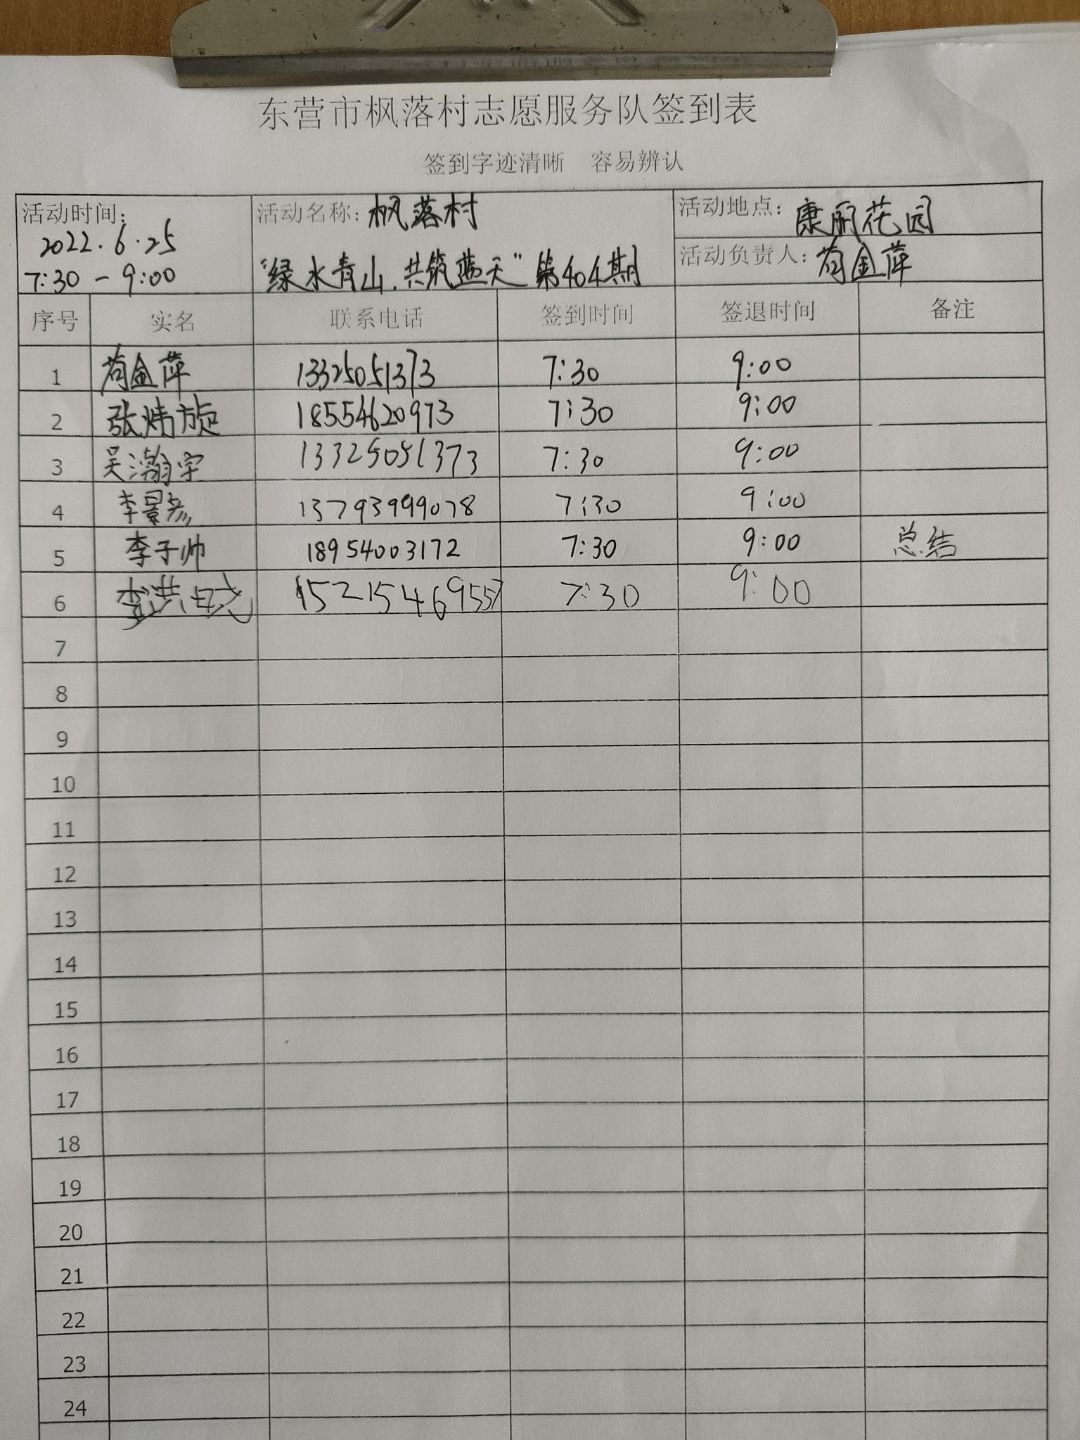 东营市枫落村志愿服务队签到表
签到字迹清晰 容易辨认
活动时间: 2022.6.25 7:30-9:00
活动名称: 枫落村 "绿水青山.共筑蓝天"第404期
活动地点: 康丽花园
活动负责人: 苟金萍
序号 实名 联系电话 签到时间 签退时间 备注
1 苟金萍 13325051373 7:30 9:00
2 张炜旋 18554620973 7:30 9:00
3 吴瀚宇 13325051373 7:30 9:00
4 李景彪 13793999078 7:30 9:00
5 李子帅 18954003172 7:30 9:00 总结
6 李洪 15215469557 7:30 9:00
7
8
9
10
11
12
13
14
15
16
17
18
19
20
21
22
23
24